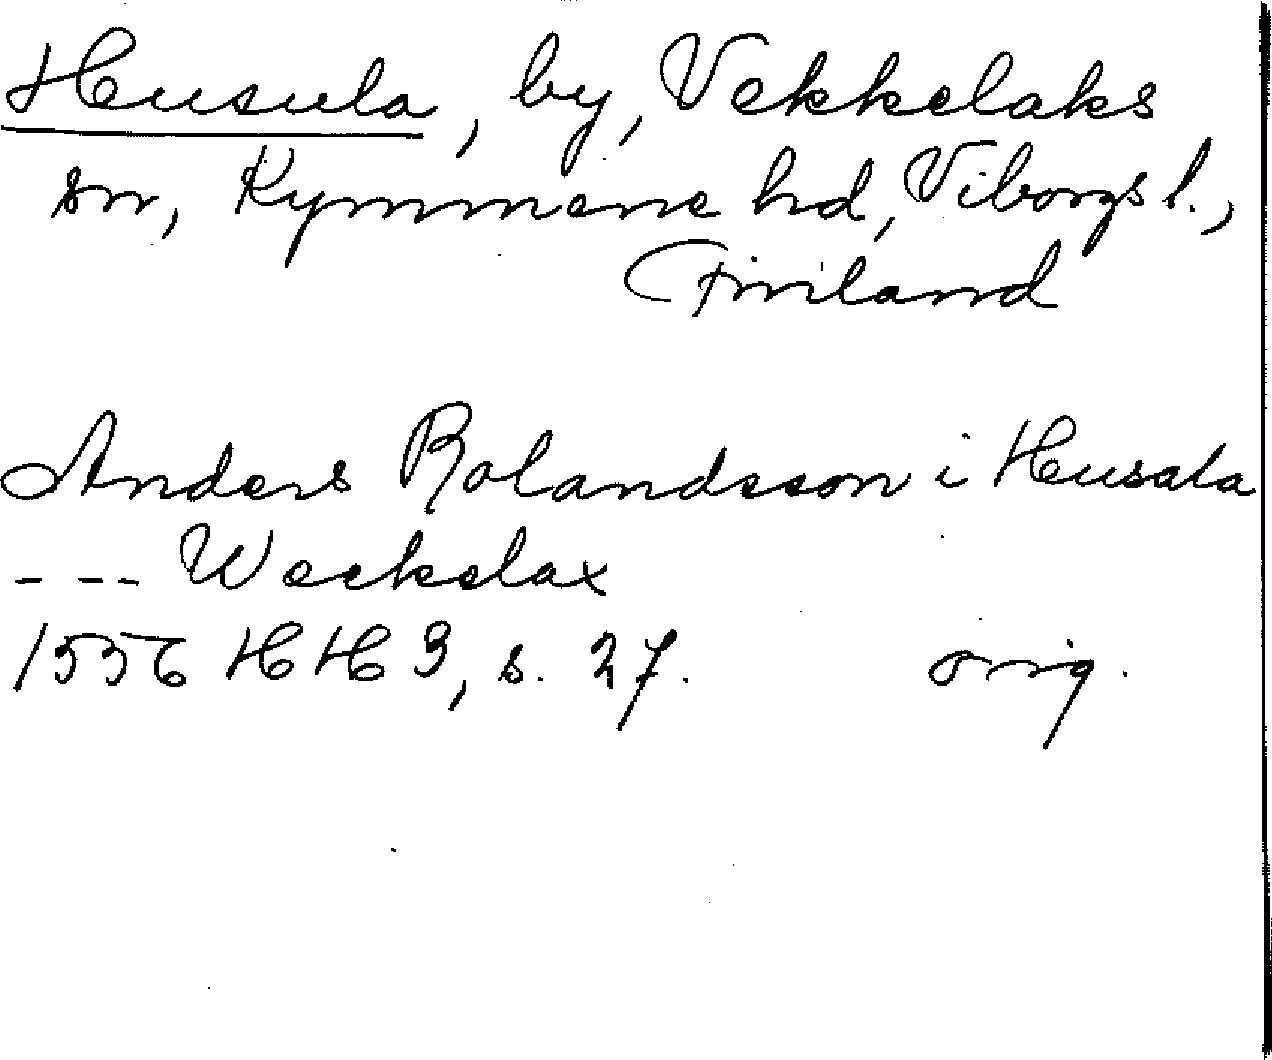 Husula, by, Vekkelaks
sn, Kymmene hd, Viborgs l.,
Finland
Anders Rolandsson i Husala
--- Weckelax
1556 HH 3, s. 27. orig.